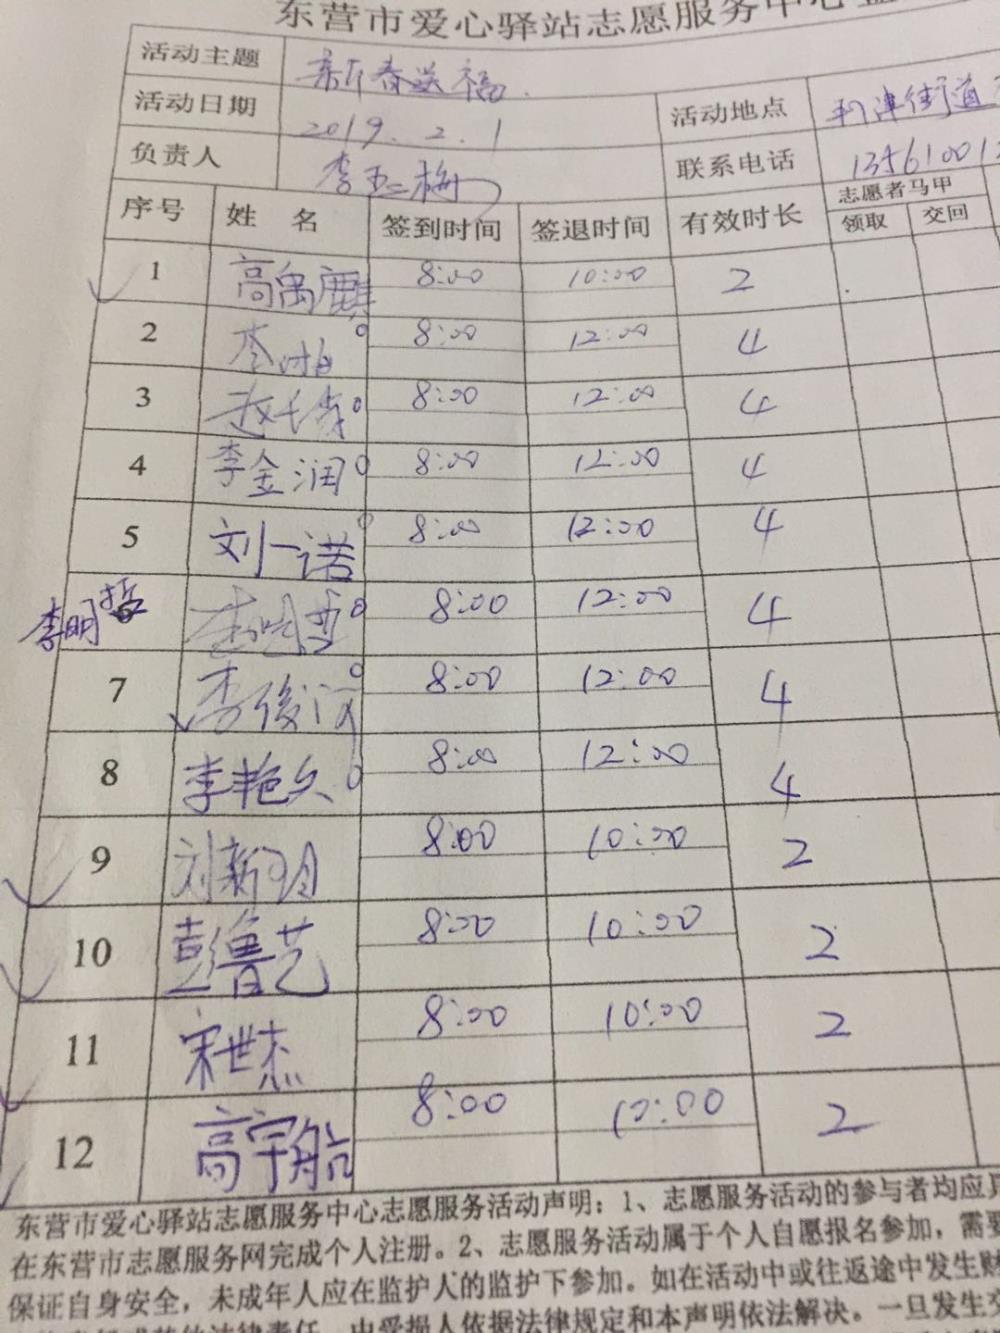 东营市爱心驿站志愿服务中心
活动主题 新春送福
活动日期 2019.2.1 活动地点 利津街道
负责人 李玉梅 联系电话 13561001
序号 姓名 签到时间 签退时间 有效时长 志愿者马甲
领取 交回
1 高禹麒 8:00 10:00 2
2 李 8:00 12:00 4
3 赵 8:00 12:00 4
4 李金润 8:00 12:00 4
5 刘一诺 8:00 12:00 4
李明哲 李明哲 8:00 12:00 4
7 李俊 8:00 12:00 4
8 李艳久 8:00 12:00 4
9 刘新 8:00 10:00 2
10 彭鲁艺 8:00 10:00 2
11 宋世杰 8:00 10:00 2
12 高宇航 8:00 10:00 2
东营市爱心驿站志愿服务中心志愿服务活动声明：1、志愿服务活动的参与者均应具
在东营市志愿服务网完成个人注册。2、志愿服务活动属于个人自愿报名参加，需要
保证自身安全，未成年人应在监护人的监护下参加。如在活动中或往返途中发生财
法律责任，由受损人依据法律规定和本声明依法解决。一旦发生交